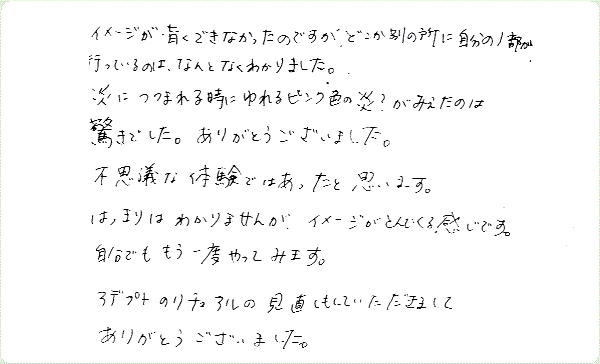 イメージが青くできなかったのですが、どこか別の所に自分の1部が
行っているのは、なんとなくわかりました。
炎につつまれる時にゆれるピンク色の炎?がみえたのは
驚きでした。ありがとうございました。
不思議な体験ではあったと思います。
はっきりはわかりませんが、イメージがとんでくる感じです。
自分でももう一度やってみます。
アデプトのリチュアルの見直しもしていただきまして
ありがとうございました。